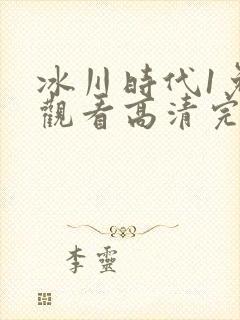 冰川時代1
觀看高清完
李靈